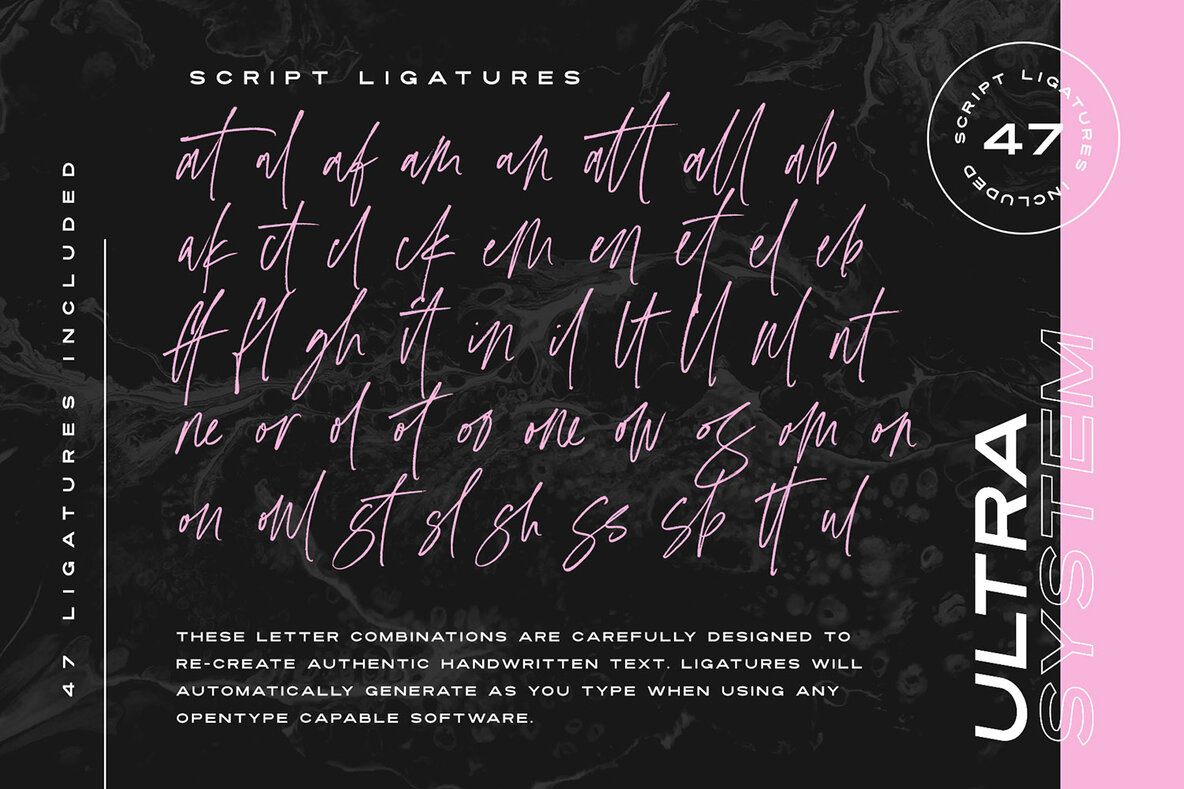 SCRIPT LIGATURES
at al af am an att all ab
ak ct cl ck em en et el eb
fl gh it in il lt ll nt
ne or ol ot oo one ow og om on
st sl sh ss tt ul
THESE LETTER COMBINATIONS ARE CAREFULLY DESIGNED TO
RE-CREATE AUTHENTIC HANDWRITTEN TEXT. LIGATURES WILL
AUTOMATICALLY GENERATE AS YOU TYPE WHEN USING ANY
OPENTYPE CAPABLE SOFTWARE.
47 LIGATURES INCLUDED
SCRIPT LIGATURES INCLUDED
47
ULTRA
SYSTEM